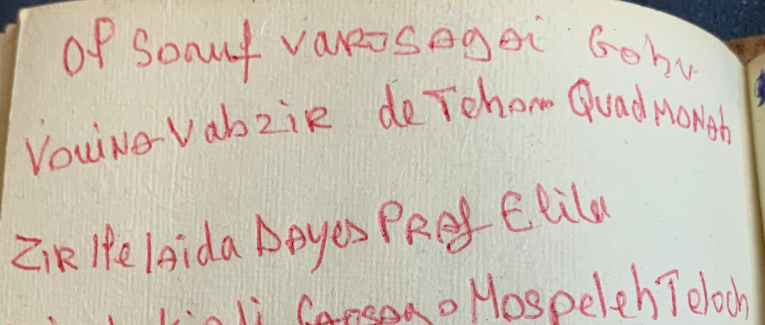 Ol Sonuf vaROSAgAi Gohu
VouiNA Vabzir de Tehom QuadMONAh
ZiR IlelAida DAyes PRAf Elila
CAOSAgo MospelehTeloch